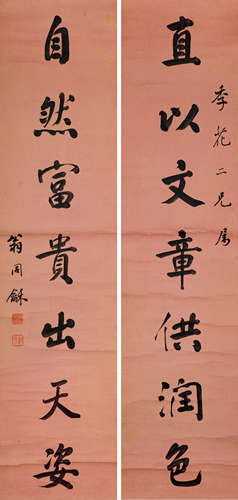 季花二兄属
直以文章供润色
自然富貴出天姿
翁同龢